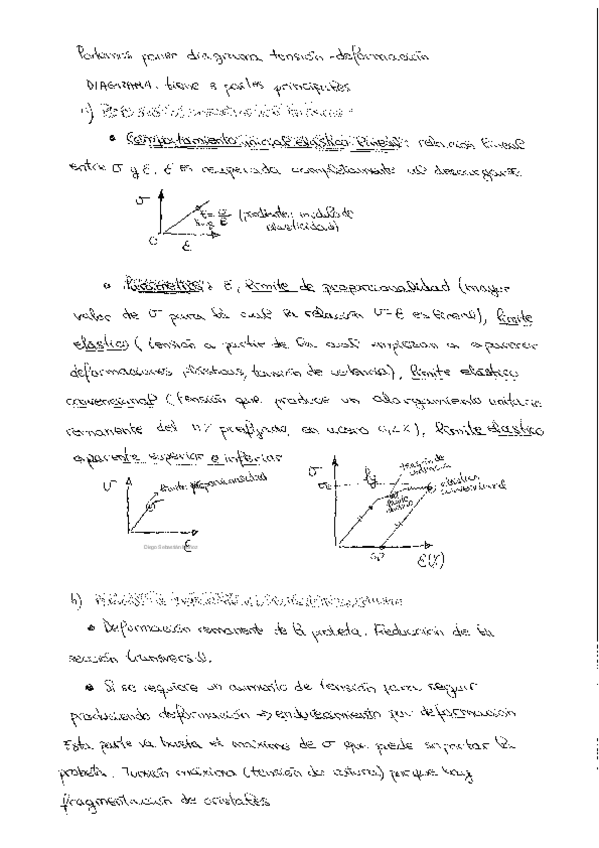 Podemos poner diagrama tensión-deformación
DIAGRAMA. tiene 3 partes principales
a)
• Comportamiento inicial elástico lineal: relación lineal
entre σ y ε. ε es recuperada completamente al descargarse
σ
E = σ/ε (pendiente: módulo de
elasticidad)
0
ε
• Parámetros: E, límite de proporcionalidad (mayor
valor de σ para la cual la relación σ-ε es lineal), límite
elástico (tensión a partir de la cual empiezan a aparecer
deformaciones plásticas, tensión de fluencia), límite elástico
convencional (tensión que produce un alargamiento unitario
remanente del n% prefijado, en acero 0,2%), límite elástico
aparente superior e inferior
σ
límite proporcionalidad
ε
σ
fy
tensión de
elástico
convencional
0,2
ε(%)
b)
• Deformación remanente de la probeta. Reducción de la
sección transversal.
• Si se requiere un aumento de tensión para seguir
produciendo deformación => endurecimiento por deformación
Esta parte va hasta el máximo de σ que puede soportar la
probeta. Tensión máxima (tensión de rotura) porque hay
fragmentación de cristales